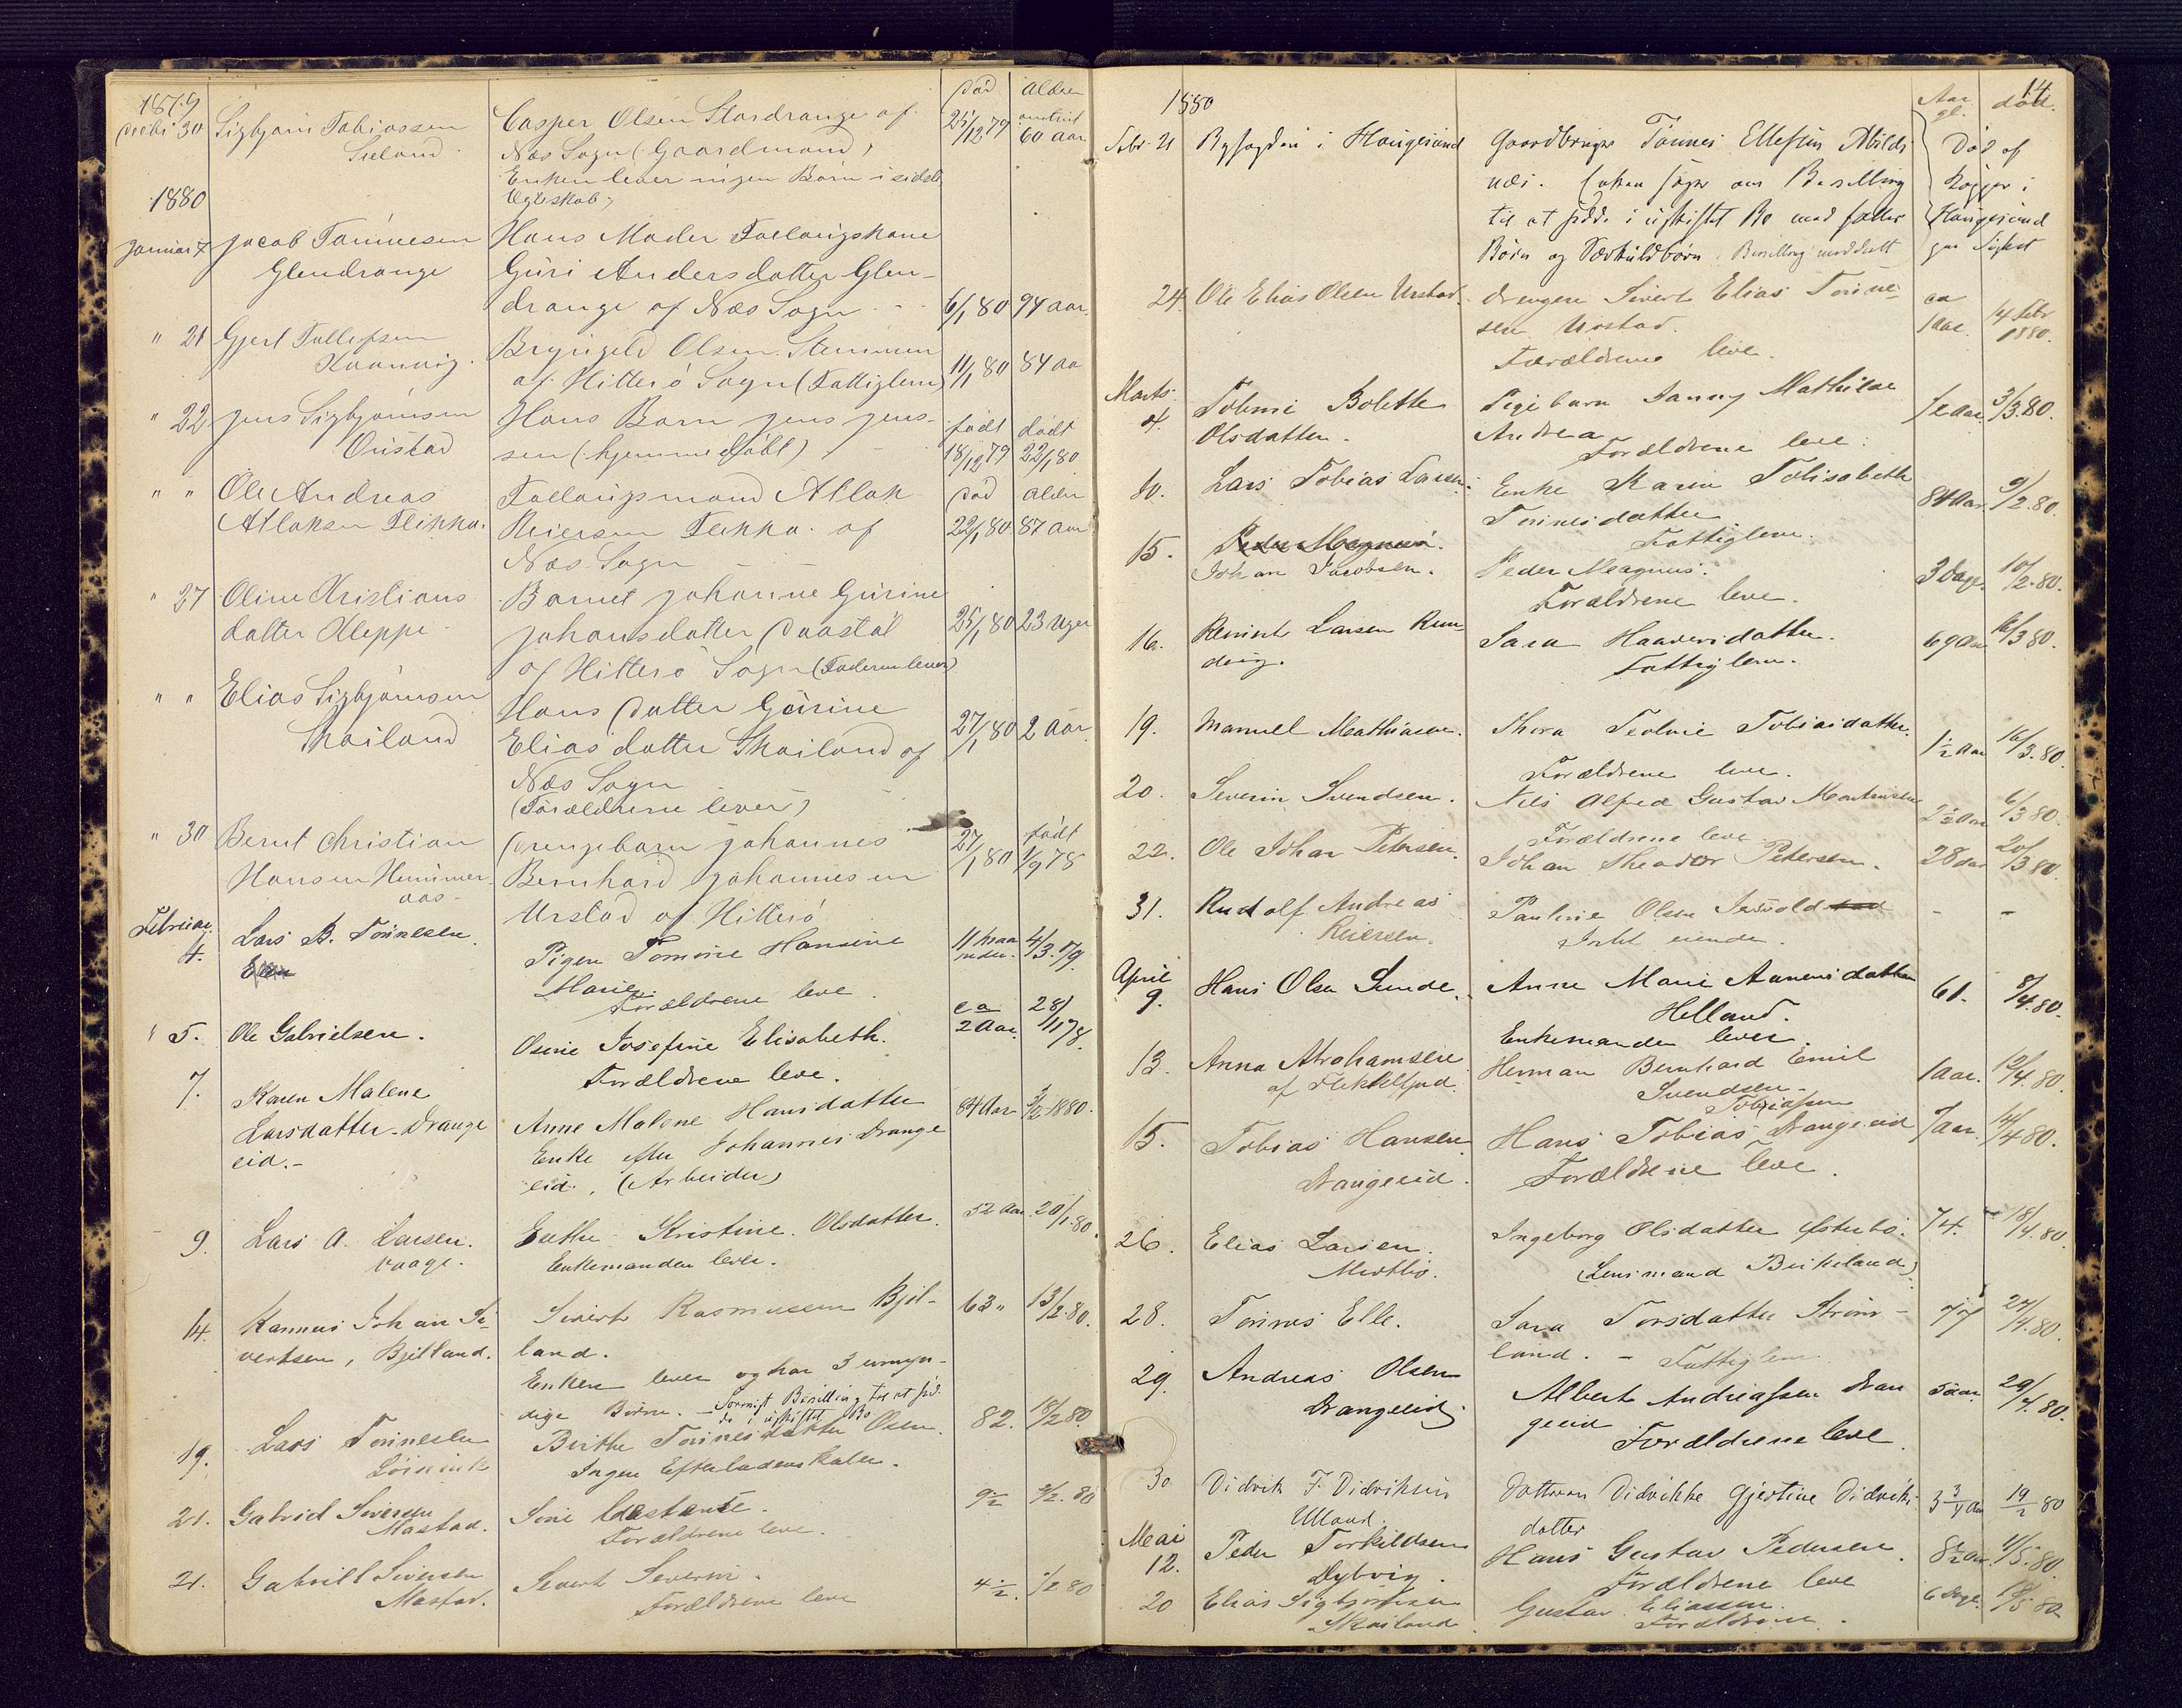 1879
Decbr 30 Sigbjørn Tobiassen Casper Olsen Stordrange af død 25/12 79 Alder omtrent 60 aar
Seland. Næs Sogn (Gaardmand)
Enken lever ingen Børn i sidste
Egteskab)
1880
Januar 7 Jacob Tønnesen Hans Moder Føllougskone
Glendrange Guri Andersdatter Glen-
drange af Næs Sogn 6/1 80 94 aar.
" 21 Gjert Tollefsen Olsen Stemmen
af Hitterø Sogn (Fattiglem) 11/1 80 84 aa
" 22 Jens Sigbjørnsen Hans Barn Jens Jens- født død
sen (hjemmedøbt) 18/12 79 22/1 80
" " Ole Andreas Atlak død Alder
Atlaksen Flikka. Reiersen Flikka. af 22/1 80 87 aar
Næs Sogn
" 27 Oline Kristians Barnet Johanne Gurine
datter Kleppe Johansdatter 25/1 80 23 Uger
af Hitterø Sogn (Faderen lever)
" " Elias Sigbjørnsen Hans Datter Gurine
Skailand Eliasdatter Skailand af 27/1 80 2 aar
Næs Sogn
(Forældrene lever)
" 30 Bernt Christian Drengebarn Johannes 27/1 80 født 1/9 78
Hansen Hummer- Bernhard Johannesen
aas Urstad af Hitterø
Februar
4. Lars B. Tønnesen Pigen Tomine Hansine 11 maa 4/3.79.
Marie. neder.
Forældrene leve.
" 5. Ole Gabrielsen. Osine Josefine Elisabeth. ca 2 Aar. 28/11 78.
Forældrene leve.
7. Karen Malene
Larsdatter Drange Anne Malene Hansdatter 84 Aar 3/2 1880.
eid.- Enke efter Johannes Drange
eid. (Arbeider)
9. Lars A. Larsen. Kristine Olsdatter. 52 Aar 20/1.80.
Vaage. Enkemanden lever.
14. Rasmus Johan Si- Sivert Rasmussen Bjel- 63" 13/2.80.
vertsen, Bjelland. land.
Enken lever og har 3 umyn-
dige Børn. - Bevilling til at sid-
de i uskiftet Bo
19. Lars Tønnesen Birthe Tønnesdatter Olsen. 82. 18/2 80.
Ingen Efterladenskaber.
21. Gabriel Sivertsen Sine 9½ 80
Mostad. Forældrene leve.
21. Gabriel Siversen Sivert Severin. 4½. 80
Mostad. Forældrene leve
14
1880 Aar gl. død.
Febr. 21 Byfogden i Haugesund Gaardbruger Tønnes Ellefsen Abilds Død af
næs. Enken søger om Bevilling Kopper i
til at sidde i uskiftet Bo med fælles Haugesund
Børn og Særkuldbørn. Bevilling meddelt
24. Ole Elias Olsen Urstad. drengen Sivert Elias Tønne- ca 14 Febr
sen Urstad. 1 Aar. 1880.
Forældrene leve.
Marts
4. Toline Bolette Pigebarn Fanny Mathilde 3/3.80.
Olsdatter. Andrea
Forældrene leve.
10. Lars Tobias Larsen. Enke Karen Tolisabeth 84 Aar. 9/2.80.
Tønnesdatter
Fattiglem.
15. Peder Magnus.
Johan Jacobsen. Peder Magnus. 3 dage. 10/2.80.
Forældrene leve.
16. Reinert Larsen Sara Haaversdatter. 69 Aar 16/3 80.
Fattiglem.
19. Manuel Mathiasen. Thora Teoline Tobiasdatter. 1½ Aar 16/3.80.
Forældrene leve.
20. Severin Svendsen. Nils Alfred Gustav 2½ Aar 6/3 80.
Forældrene leve
22. Ole Johan Petersen. Johan Theodor Petersen. 28 Aar 20/3 80.
31. Rudolf Andreas Pauline Olsen - -
Reiersen. Intet eiende.
April
9. Hans Olsen Sunde. Anne Marie Aanensdatter 61. 8/4.80.
Helland.
Enkemanden lever.
13. Anna Abrahamsen Herman Bernhard Emil 1 Aar. 12/4.80.
af Flekkefjord. Svendsen.
Tobiassen
15. Tobias Hansen Hans Tobias Drangeeid 7 Aar. 14/4 80.
Drangeeid. Forældrene leve.
26. Elias Larsen. Ingeborg Olsdatter 74. 18/4.80.
(Lensmand Birkeland)
28. Tønnes Elle. Sara Torsdatter Strøm- 77 27/4.80.
land. - Fattiglem
29. Andreas Olsen Albert Andreassen Dran 5 aar. 29/4.80.
Drangeeid geeid
Forældrene leve.
30 Didrik F. Didriksen Datteren Didrikke Gjertine Didriks 3¾ Aar 19/2 80
Ulland. datter
Mai
12. Peder Torkildsen Hans Gustav Pedersen. 8½ Aar. 4/5.80.
Dybvig. Forældrene leve
20 Elias Sigbjørnsen Gustav Eliassen. 6 dage. 18/5 80
Skailand. Forældrene.